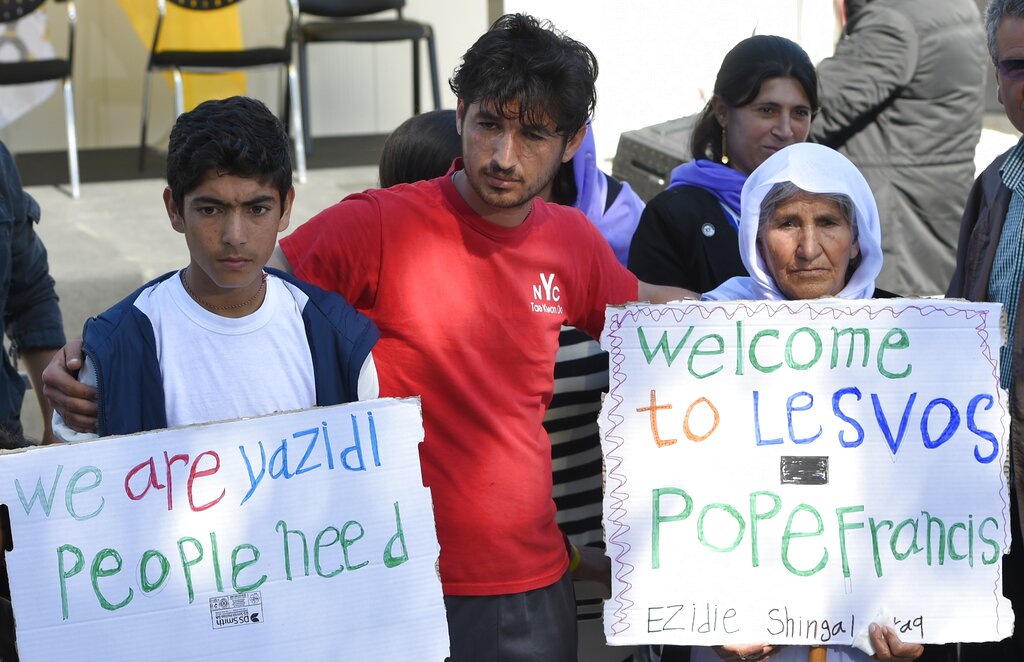 We are yazidi
People need
DS Smith
NYC
Tae Kwon Do
welcome
to Lesvos
Pope Francis
EZidie Shingal